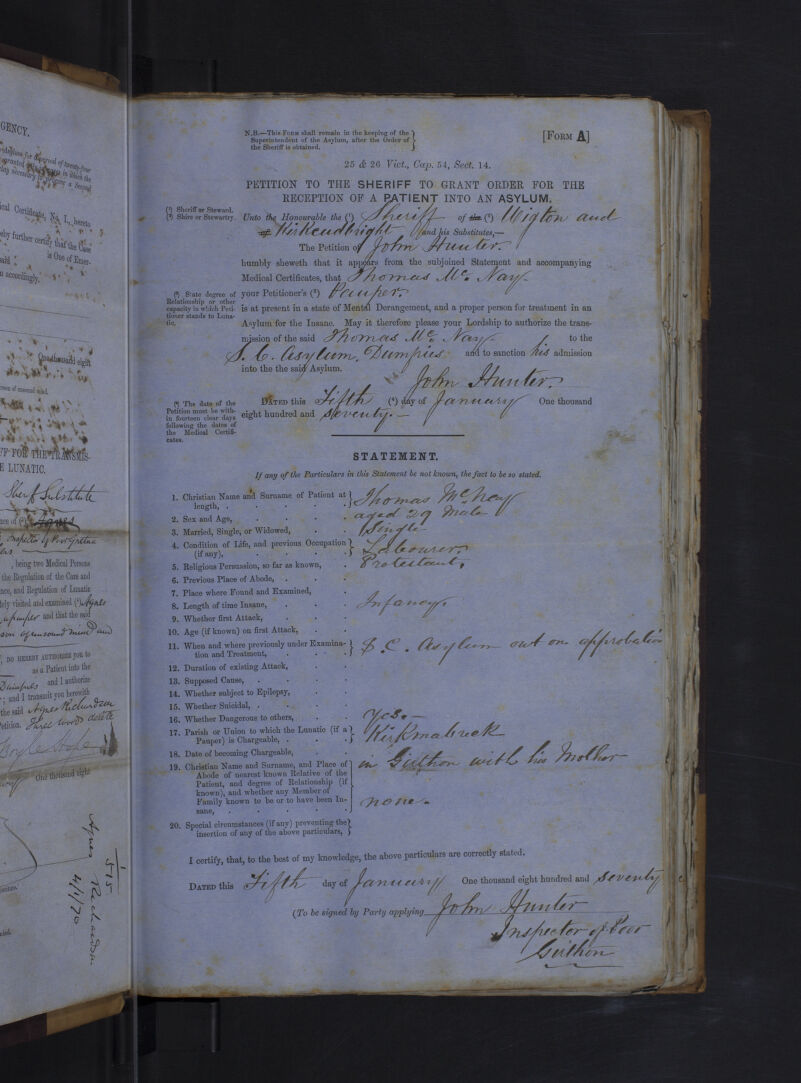 GENCY.
ical Certificate, No. I., hereto
eby further certify that the Case
said
is One of Emer-
n accordingly.
One thousand eight
E LUNATIC.
Sheriff Substitute
, being two Medical Persons
the Regulation of the Care and
nce, and Regulation of Lunatic
tely visited and examined (⁵) Agnes
a pauper and that the said
son of unsound mind and
, DO HEREBY AUTHORIZE you to
as a Patient into the
Dumfries and I authorize
; and I transmit you herewith
the said Agnes Richardson
Petition. Three words delete
One thousand eight
1
515
Agnes Richardson
4/1/70
N.B.—This Form shall remain in the keeping of the
Superintendent of the Asylum, after the Order of
the Sheriff is obtained.
[Form A]
25 & 26 Vict., Cap. 54, Sect. 14.
PETITION TO THE SHERIFF TO GRANT ORDER FOR THE
RECEPTION OF A PATIENT INTO AN ASYLUM.
(¹) Sheriff or Steward.
(²) Shire or Stewartry.
Unto the Honourable the (¹) Sheriff of the (²) Wigton and
of Kirkcudbright and his Substitutes,—
The Petition of John Hunter.
humbly sheweth that it appears from the subjoined Statement and accompanying
Medical Certificates, that Thomas Mc. Nay
(³) State degree of
Relationship or other
capacity in which Peti-
tioner stands to Luna-
tic.
your Petitioner's (³) Pauper.
is at present in a state of Mental Derangement, and a proper person for treatment in an
Asylum for the Insane. May it therefore please your Lordship to authorize the trans-
mission of the said Thomas Mc. Nay to the
S. C. Asylum, Dumfries and to sanction his admission
into the the said Asylum.
John Hunter.
(⁴) The date of the
Petition must be with-
in fourteen clear days
following the dates of
the Medical Certifi-
cates.
Dated this Fifth (⁴) day of January One thousand
eight hundred and Seventy.—
STATEMENT.
If any of the Particulars in this Statement be not known, the fact to be so stated.
1. Christian Name and Surname of Patient at
length, . Thomas Mc Nay
2. Sex and Age, aged 29 Male
3. Married, Single, or Widowed, Single
4. Condition of Life, and previous Occupation
(if any), Labourer,
5. Religious Persuasion, so far as known, Protestant.
6. Previous Place of Abode,
7. Place where Found and Examined,
8. Length of time Insane, Infancy.
9. Whether first Attack,
10. Age (if known) on first Attack,
11. When and where previously under Examina-
tion and Treatment, S. C. Asylum out on approbation
12. Duration of existing Attack,
13. Supposed Cause,
14. Whether subject to Epilepsy,
15. Whether Suicidal,
16. Whether Dangerous to others, Yes.—
17. Parish or Union to which the Lunatic (if a
Pauper) is Chargeable, Kirkmabreck
18. Date of becoming Chargeable,
19. Christian Name and Surname, and Place of
Abode of nearest known Relative of the
Patient, and degree of Relationship (if
known), and whether any Member of
Family known to be or to have been In-
sane,
in Girthon with his Mother
none.
20. Special circumstances (if any) preventing the
insertion of any of the above particulars,
I certify, that, to the best of my knowledge, the above particulars are correctly stated.
Dated this Fifth day of January One thousand eight hundred and Seventy
(To be signed by Party applying John Hunter
Inspector of Poor
Girthon